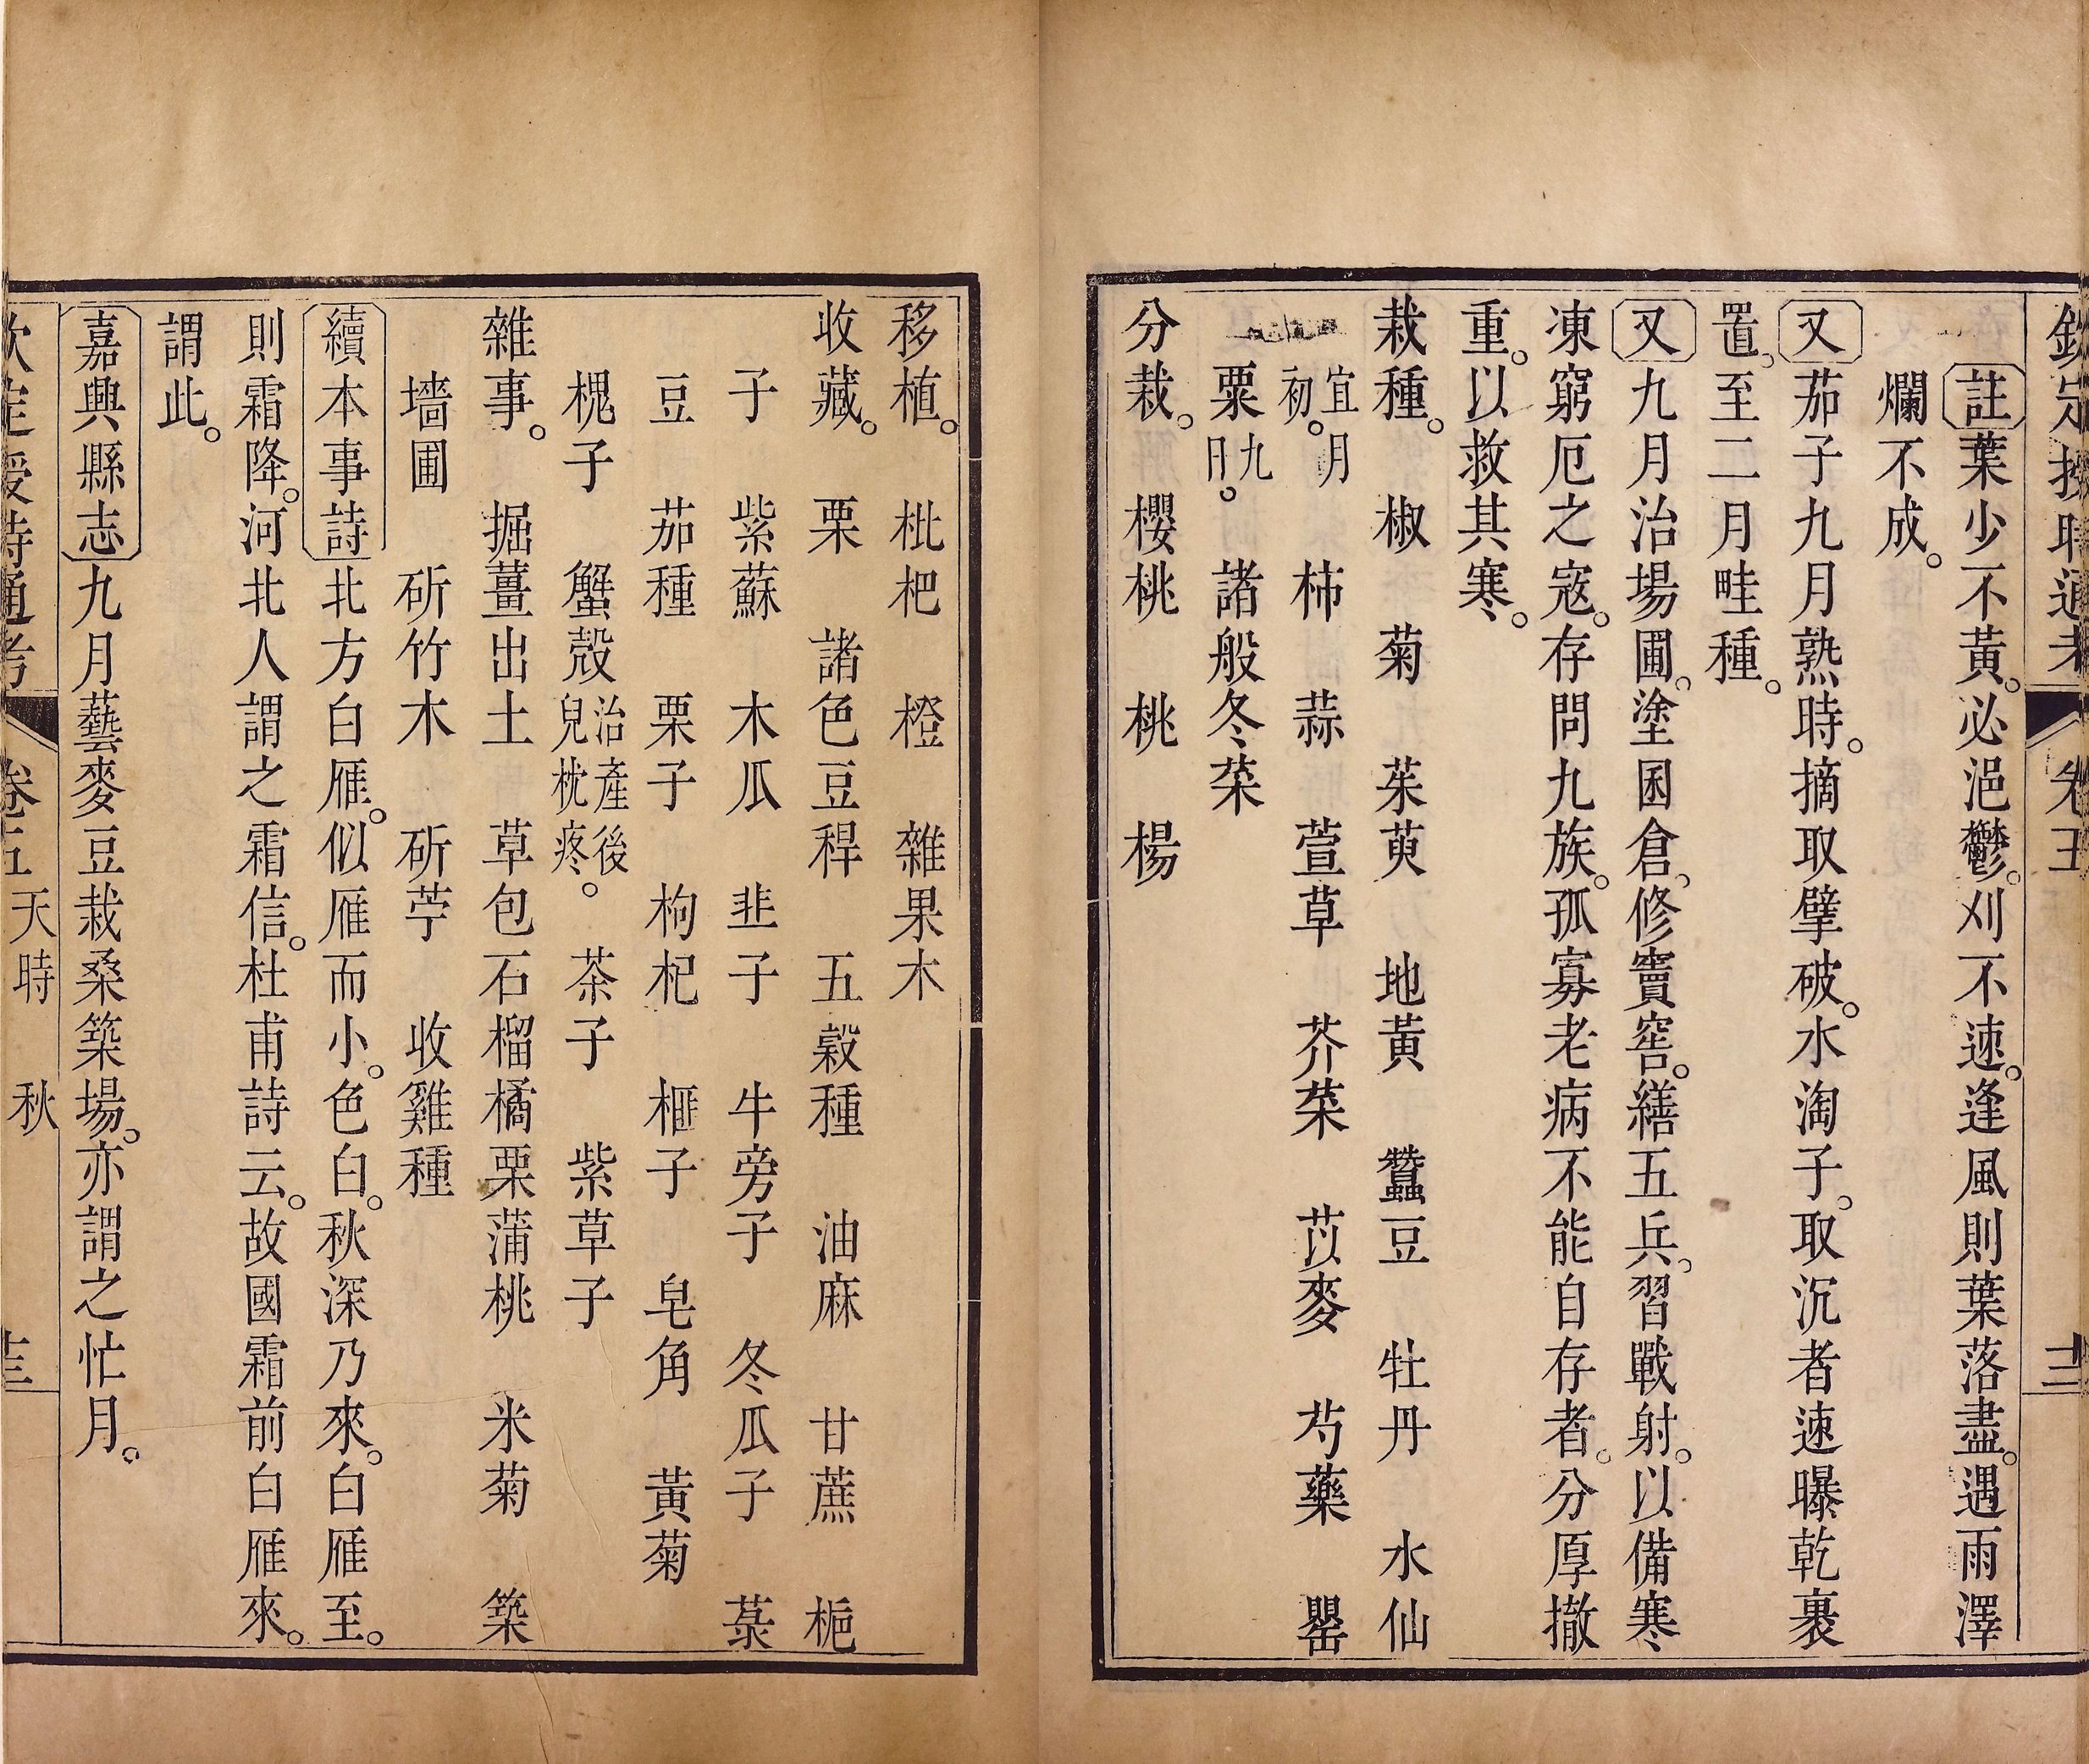 欽定授時通考 卷五 十二
註葉少不黃。必浥鬱。刈不速。逢風則葉落盡。遇雨澤
爛不成。
又茄子九月熟時。摘取擘破。水淘子。取沉者速曝乾裹
置。至二月畦種。
又九月治場圃。塗囷倉。修竇窖。繕五兵。習戰射。以備寒
凍窮厄之寇。存問九族。孤寡老病不能自存者。分厚撤
重。以救其寒。
栽種。 椒 菊 茱萸 地黃 蠶豆 牡丹 水仙
宜月初。 柿 蒜 萱草 芥菜 苡麥 芍藥 罌
粟九月。 諸般冬菜
分栽。 櫻桃 桃 楊
移植。 枇杷 橙 雜果木
收藏。 栗 諸色豆稈 五穀種 油麻 甘蔗 梔
子 紫蘇 木瓜 韭子 牛旁子 冬瓜子 菉
豆 茄種 栗子 枸杞 榧子 皂角 黃菊
槐子 蟹殼治產後兒枕疼。 茶子 紫草子
雜事。 掘薑出土 草包石榴橘栗蒲桃 米菊 築
墻圃 斫竹木 斫苧 收雞種
續本事詩北方白雁。似雁而小。色白。秋深乃來。白雁至。
則霜降。河北人謂之霜信。杜甫詩云。故國霜前白雁來。
謂此。
嘉興縣志九月藝麥豆栽桑築場。亦謂之忙月。
欽定授時通考 卷五 天時 秋 十三